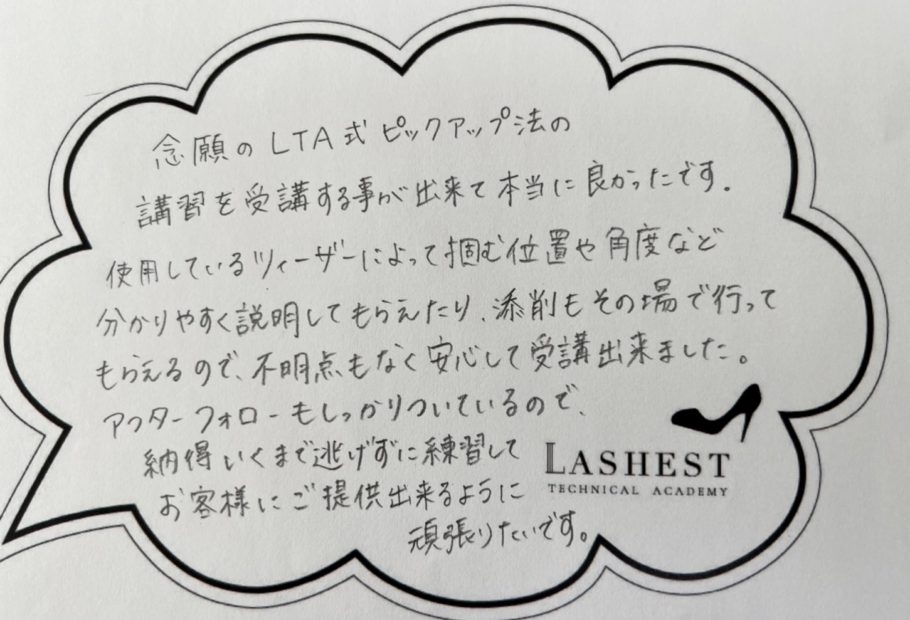 念願のLTA式ピックアップ法の
講習を受講する事が出来て本当に良かったです.
使用しているツィーザーによって掴む位置や角度など
分かりやすく説明してもらえたり、添削もその場で行って
もらえるので、不明点もなく安心して受講出来ました。
アフターフォローもしっかりついているので、
納得いくまで逃げずに練習して
お客様にご提供出来るように
頑張りたいです。
LASHEST
TECHNICAL ACADEMY